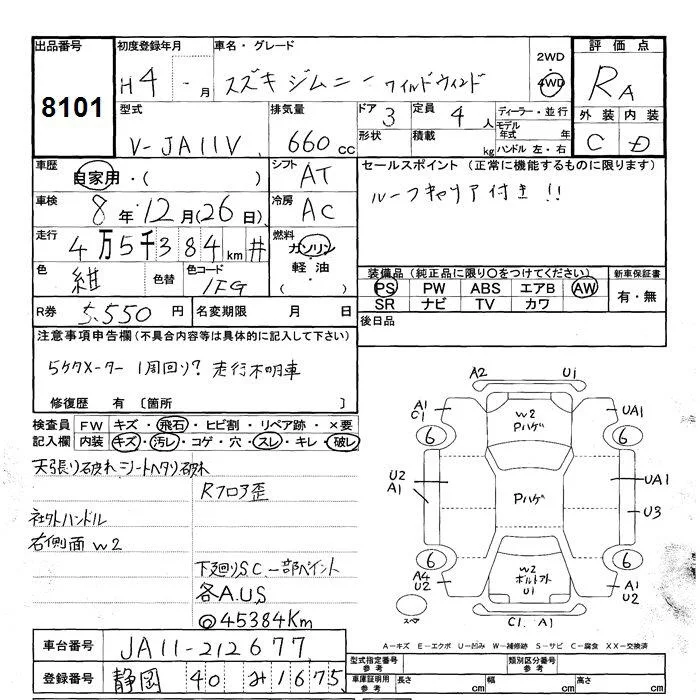 出品番号 初度登録年月 車名・グレード 評価点
8101 H4 - 月 スズキ ジムニー ワイルドウィンド 2WD 4WD RA
型式 排気量 ドア 3 定員 4人 ディーラー・並行 外装 内装
V-JA11V 660 cc 形状 積載 kg モデル年式 年 ハンドル 左・右 C D
車歴 自家用・( ) シフト AT セールスポイント (正常に機能するものに限ります)
車検 8年12月(26日) 冷房 AC ルーフキャリア付き!!
走行 4万5千384km # 燃料 ガソリン・軽油・( )
色 紺 色替 色コード 1FG 装備品 (純正品に限り〇をつけてください) 新車保証書
PS PW ABS エアB AW 有・無
SR ナビ TV カワ
R券 5,550円 名変期限 月 日 後日品
注意事項申告欄(不具合内容等は具体的に記入して下さい)
5ケタメーター 1周回り? 走行不明車
修復歴 有 [箇所 ]
検査員記入欄 FW キズ・飛石・ヒビ割・リペア跡・×要
内装 キズ・汚レ・コゲ・穴・スレ・キレ・破レ
天張り破れ シートヘタリ破れ
Rフロア歪
社外ハンドル
右側面 W2
下廻りS.C. 一部ペイント
各A.U.S
◎45384Km
A2 U1
A1 C1 W2 Pハゲ UA1
6 6
U2 A1 Pハゲ UA1 U3
6 6
A4 U2 W2 ボルト外 U1 A1 U2
スペア C1. A1
A-キズ E-エクボ U-凹み W-補修跡 S-サビ C-腐食 XX-交換済
車台番号 JA11-212677
登録番号 静岡 40 み1675
型式指定番号 参考 類別区分番号 参考
車庫証明用 参考 長さ cm 幅 cm 高さ cm